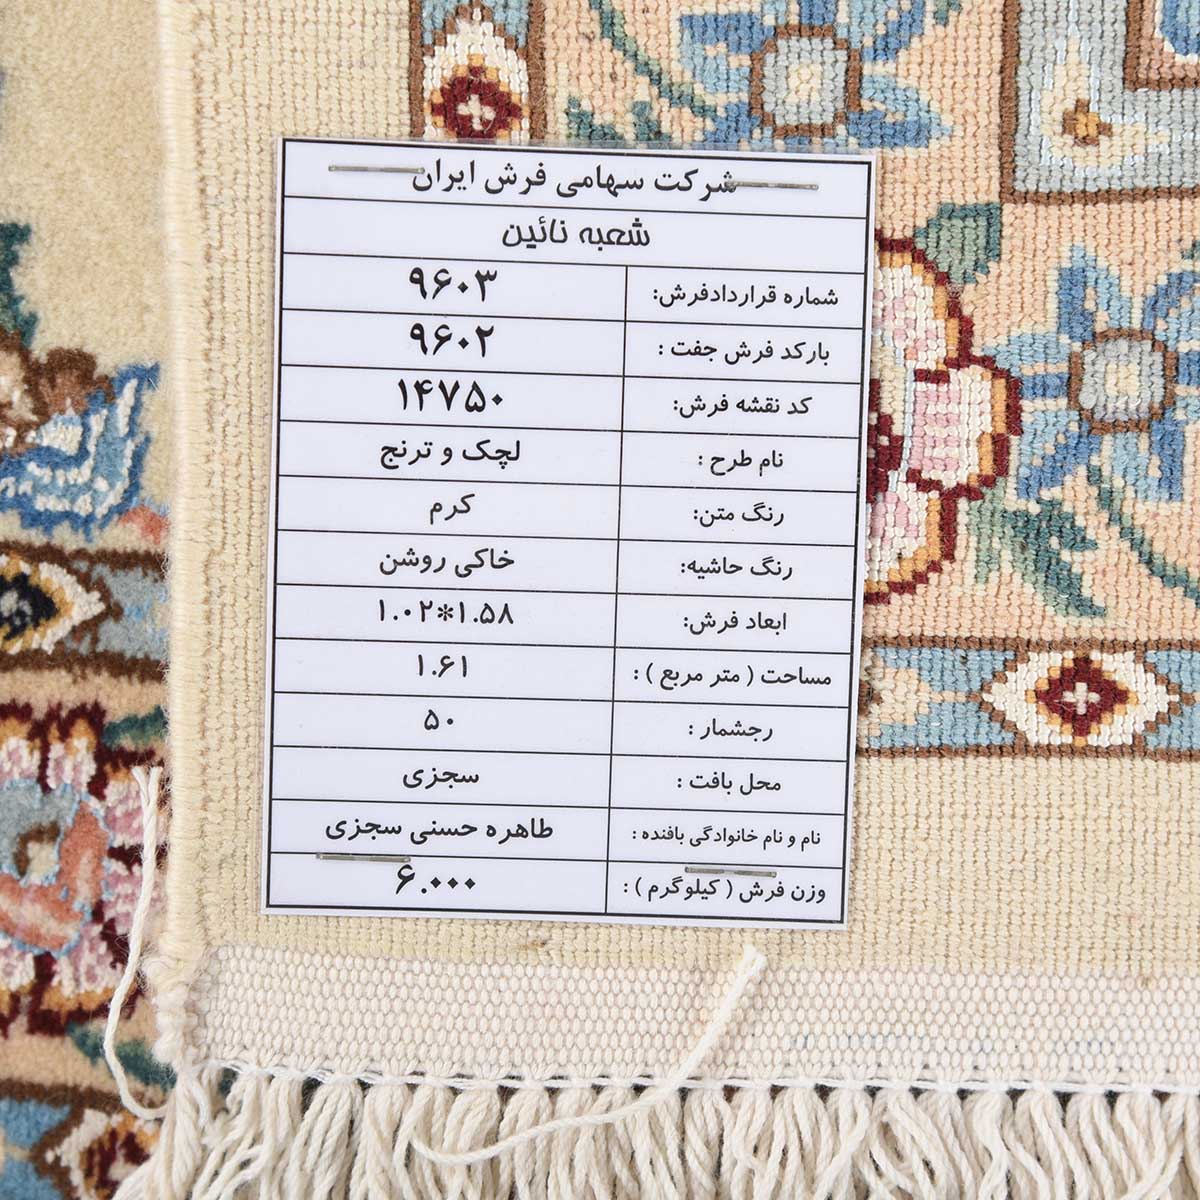 شرکت سهامی فرش ایران
شعبه نائین
شماره قراردادفرش: ۹۶۰۳
بارکد فرش جفت : ۹۶۰۲
کد نقشه فرش: ۱۴۷۵۰
نام طرح : لچک و ترنج
رنگ متن: کرم
رنگ حاشیه: خاکی روشن
ابعاد فرش: ۱.۰۲*۱.۵۸
مساحت ( متر مربع ) : ۱.۶۱
رجشمار : ۵۰
محل بافت : سجزی
نام و نام خانوادگی بافنده : طاهره حسنی سجزی
وزن فرش ( کیلوگرم ) : ۶.۰۰۰